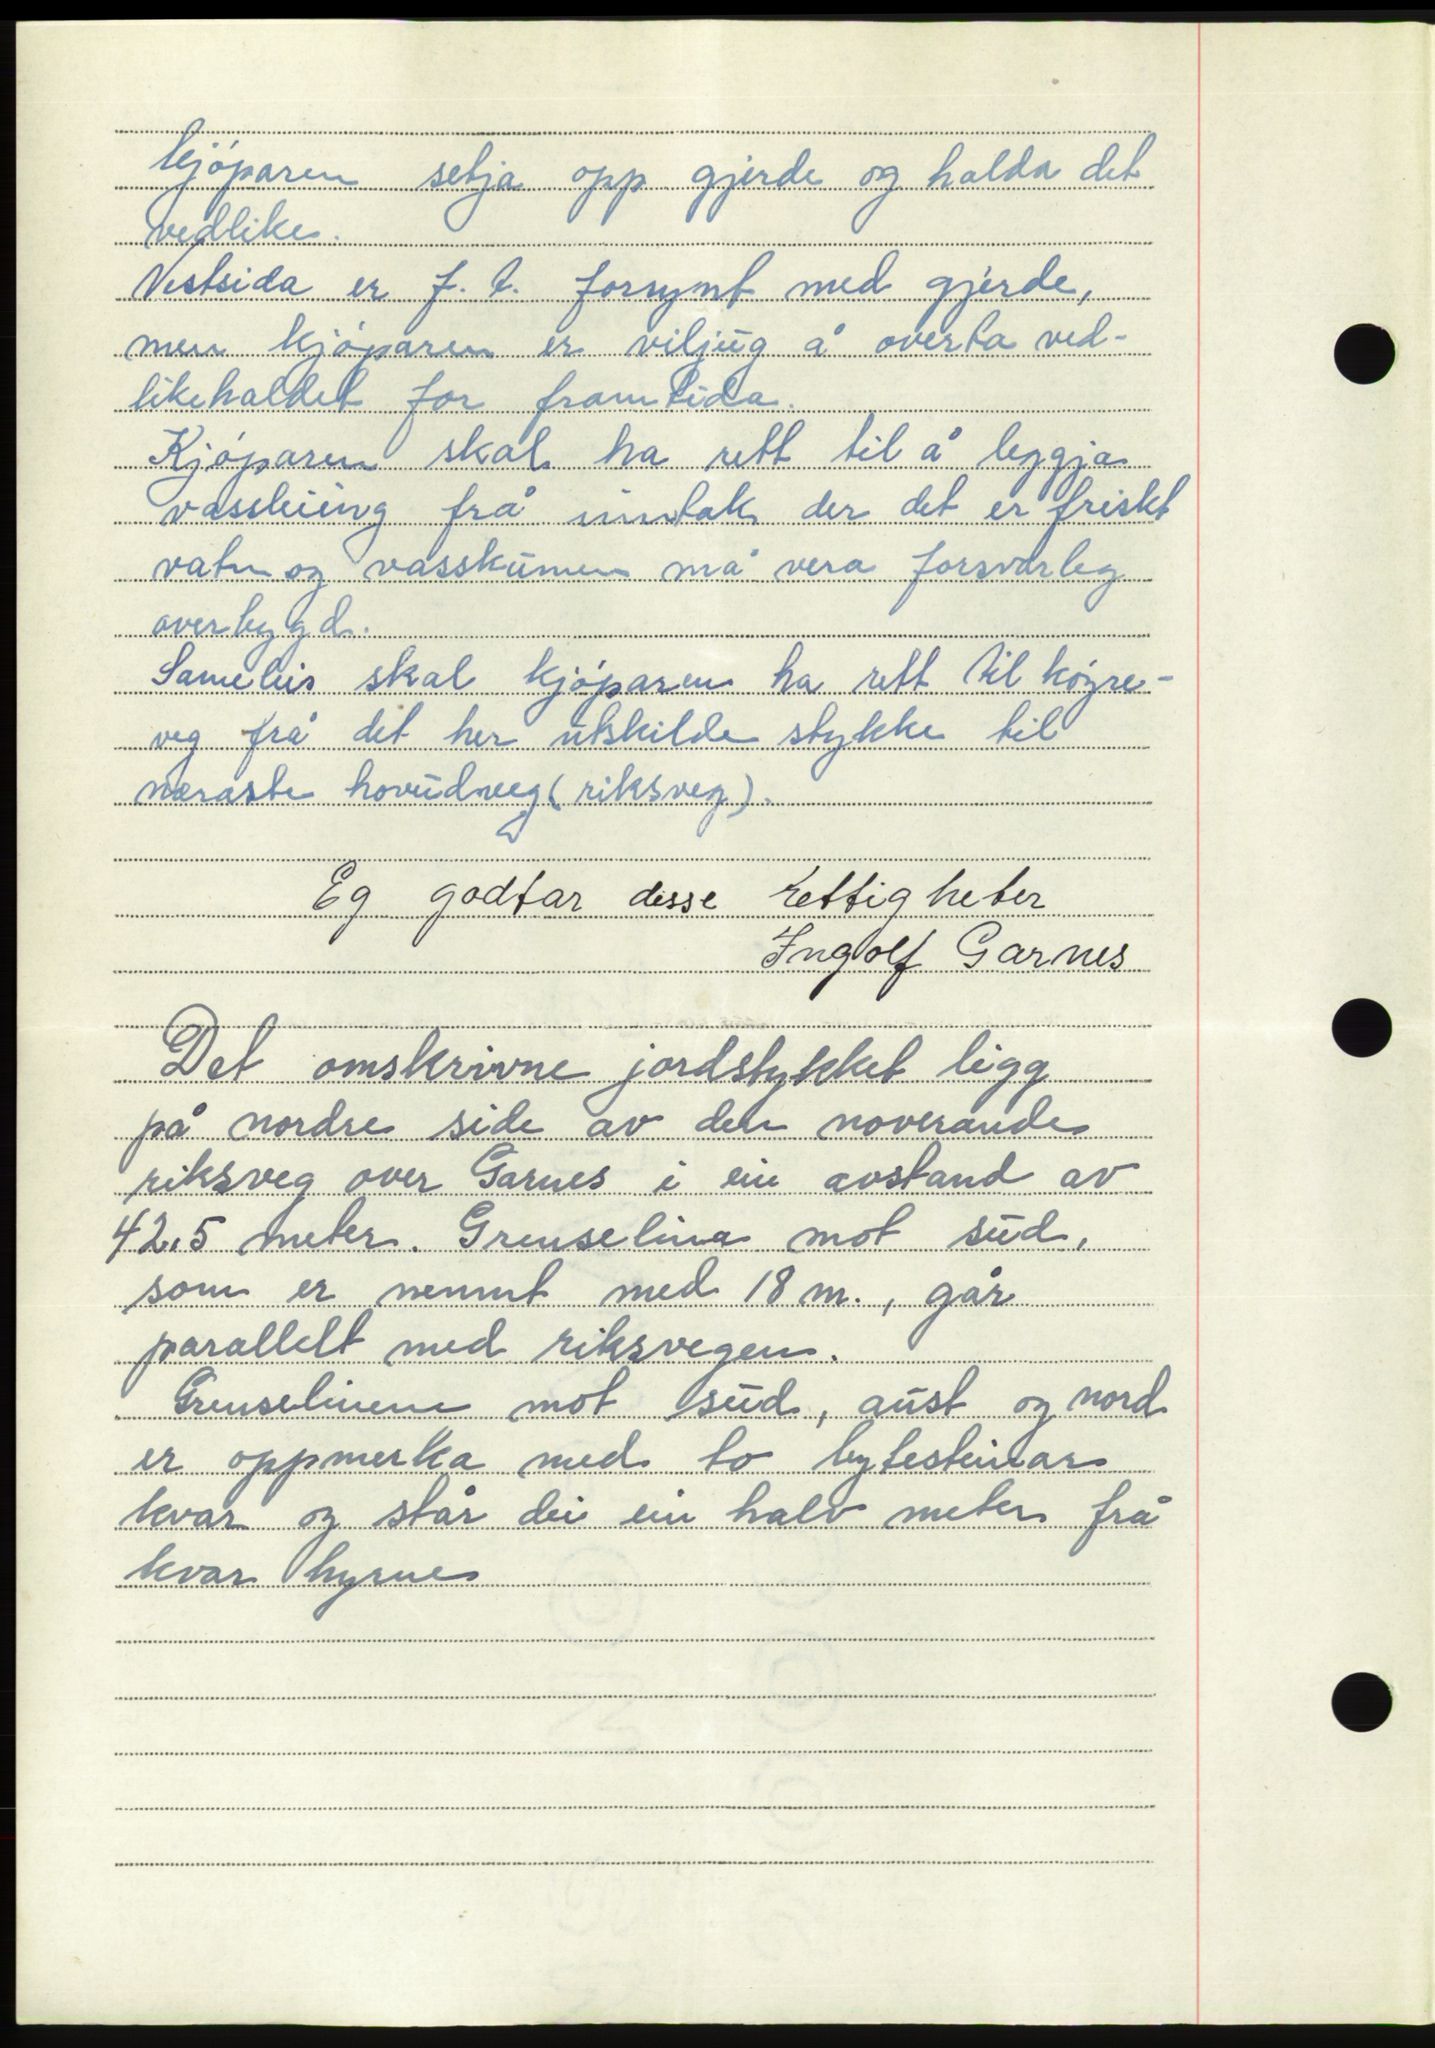 kjóparen setja opp gjerde og halda det
vedlike.
Vestsida er f. t. forsynt med gjerde,
men kjóparen er viljug å overta ved-
likehaldet for framtida.
Kjóparen skal ha rett til å leggja
vassleiing frå inntak der det er friskt
vatn og vasskumen må vera forsvarleg
overbygd.
Sameleis skal kjóparen ha rett til kóyre-
veg frå det her utskilde stykke til
næraste hovudveg (riksveg).
Eg godtar disse rettigheter
Ingolf Garnes
Det omskrivne jordstykket ligg
på nordre side av den noverande
riksveg over Garnes i ein avstand av
42,5 meter. Grenselina mot sud,
som er nemnt med 18 m., går
parallelt med riksvegen.
Grenselinene mot sud, aust og nord
er oppmerka med to bytesteinar
kvar og står dei ein halv meter frå
kvar hyrne